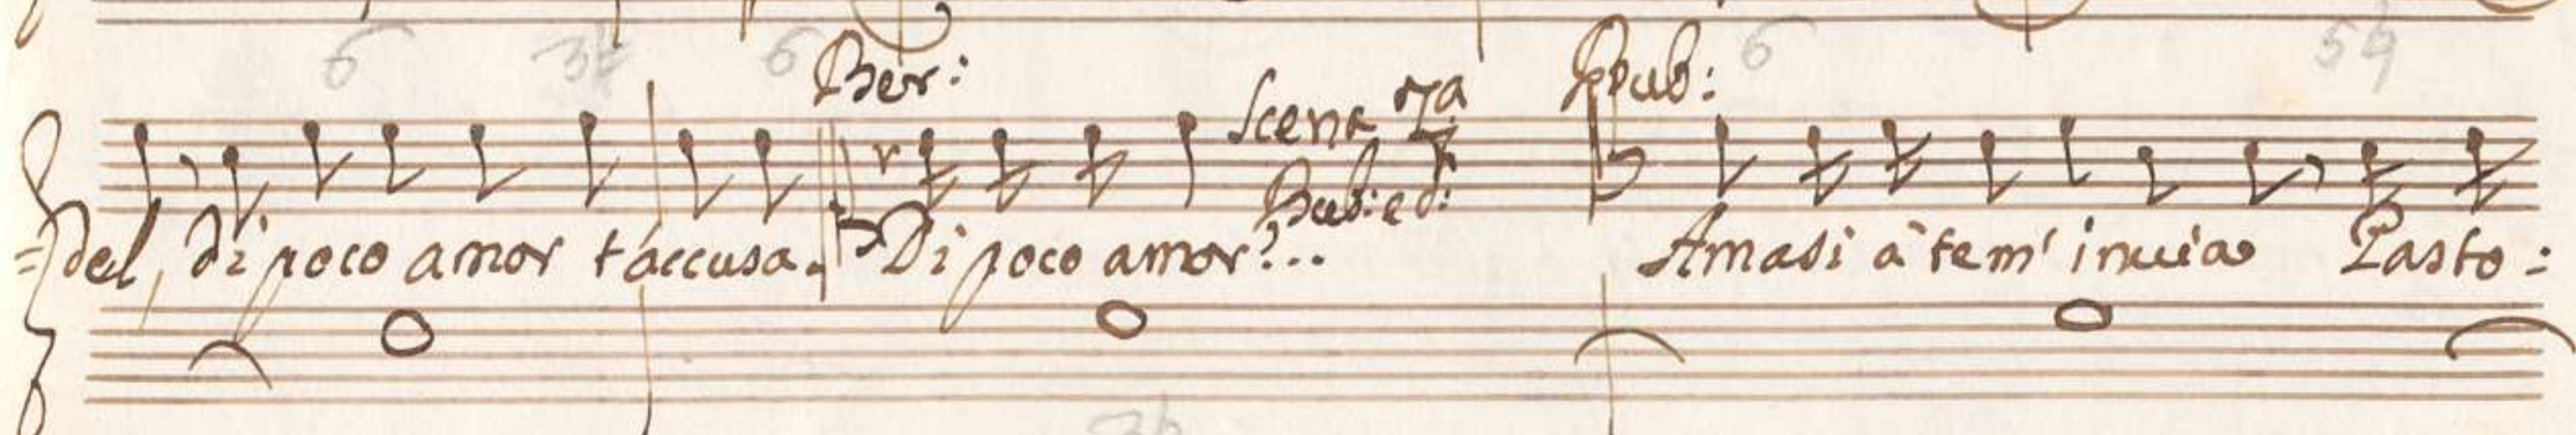 6 3# 6 Ber: Pub: 6 5 4
Scena 7a
Pub: e d:
=del, di poco amor t'accusa. Di poco amor?... Amasi à te m'inuia Pasto:
3b